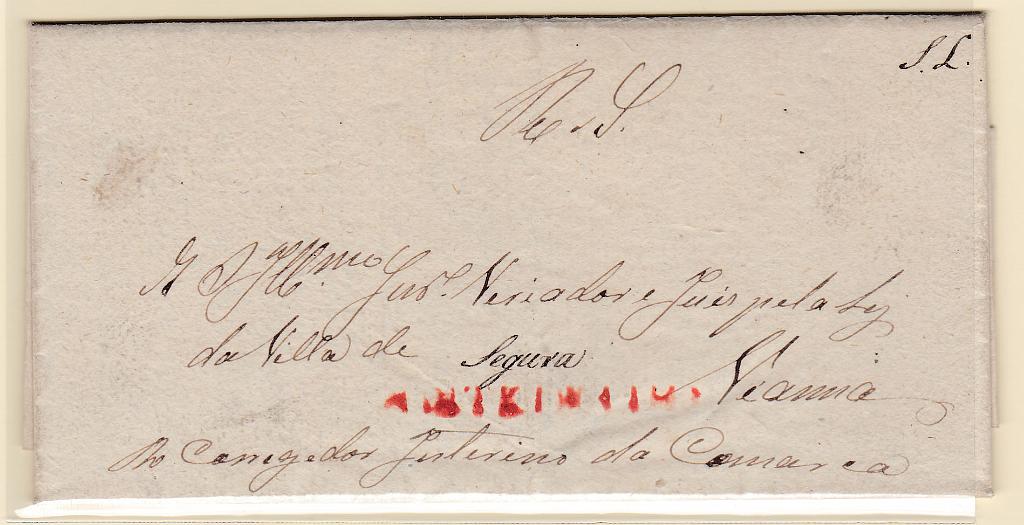 S. L.
R. S.
Illmo Snr. Veriador e Juis pela Ley
da Villa de Segura Vianna
Do Corregedor Interino da Comarca